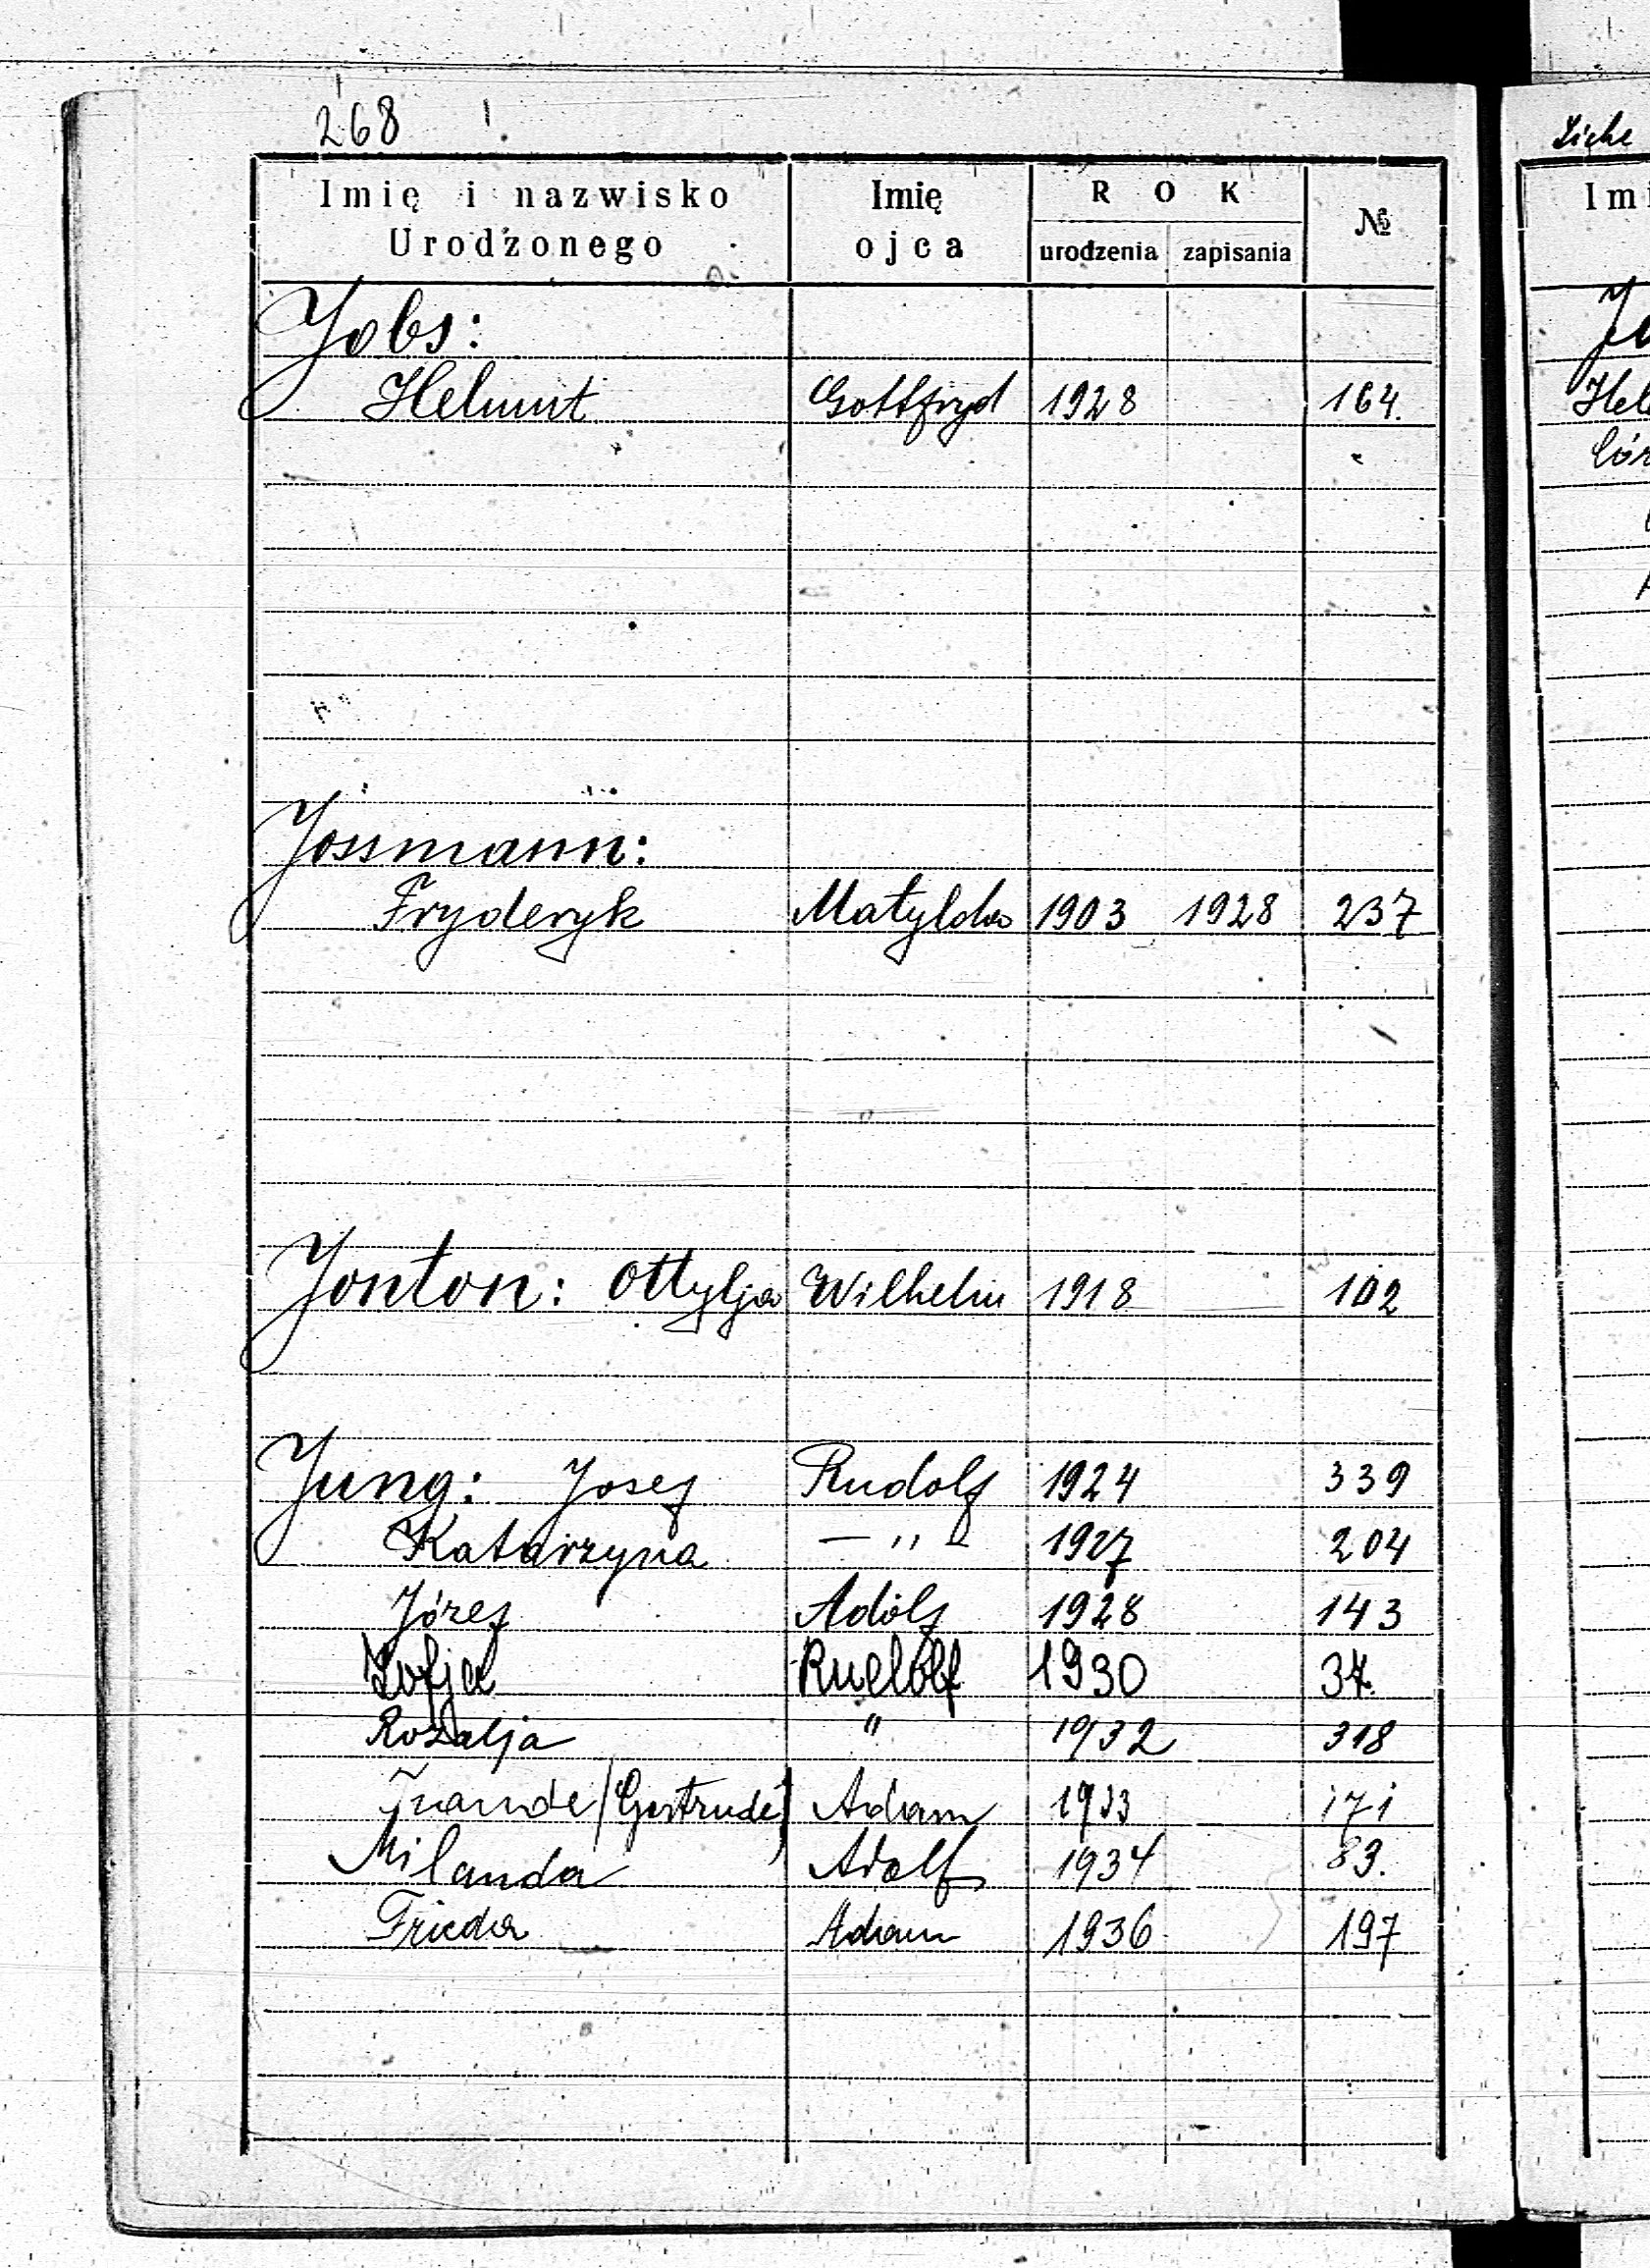 268
Imię i nazwisko Urodzonego | Imię ojca | ROK urodzenia | zapisania | №
Jobs:
Helmut Gottfryd 1928 164.
Jossmann:
Fryderyk Matylda 1903 1928 237
Jonton: Ottylja Wilhelm 1918 102
Jung: Josef Rudolf 1924 339
Katarzyna — " — 1927 204
Józef Adolf 1928 143
Zofja Rudolf 1930 37.
Rozalja " 1932 318
(Gertrude) Adam 1933 171
Milanda Adolf 1934 83.
Frieda Adam 1936 197
Siehe
Imi
Ju
Hel
Cór